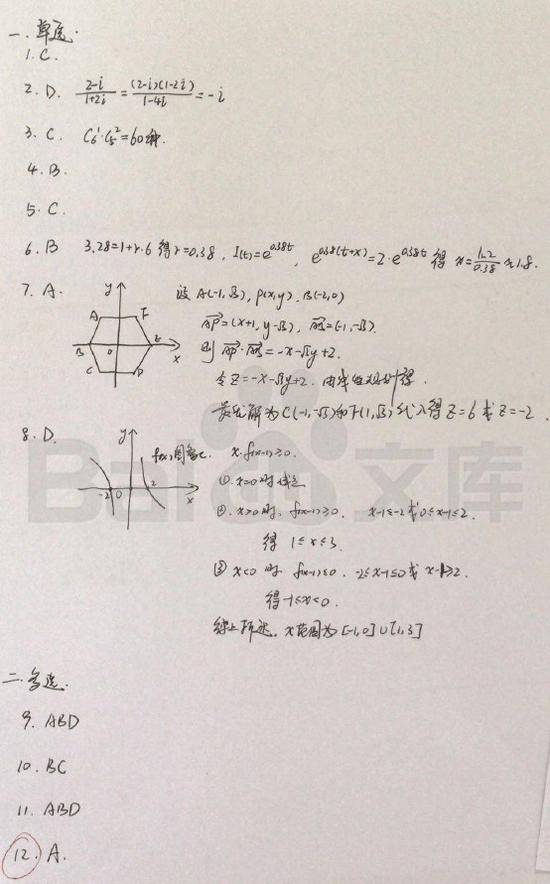 一. 单选.
1. C.
2. D. (2-i)/(1+2i) = (2-i)(1-2i)/(1-4i) = -i
3. C. C₆¹·C₅² = 60种.
4. B.
5. C.
6. B 3.28=1+r·6 得 r=0.38, I(t)=e^{0.38t}, e^{0.38(t+x)}=2·e^{0.38t} 得 x=ln2/0.38≈1.8.
7. A. 设 A(-1,√3), P(x,y), B(-2,0)
y A F B O E x C D
AP=(x+1, y-√3), AB=(-1,-√3).
则 AP·AB=-x-√3y+2.
令 Z=-x-√3y+2. 由线性规划得.
最优解为 C(-1,-√3)和F(1,√3) 代入得 Z=6 或 Z=-2.
8. D. f(x)图象. x·f(x-1)≥0.
y -2 O 2 x
①. x=0时成立
②. x>0时, f(x-1)≥0. x-1≤-2或0≤x-1≤2.
得 1≤x≤3.
③ x<0 时 f(x-1)≤0. -2≤x-1≤0 或 x-1≥2.
得-1≤x<0.
综上所述, x范围为 [-1,0]∪[1,3]
Bai 文库
二. 多选.
9. ABD
10. BC
11. ABD
12. A.